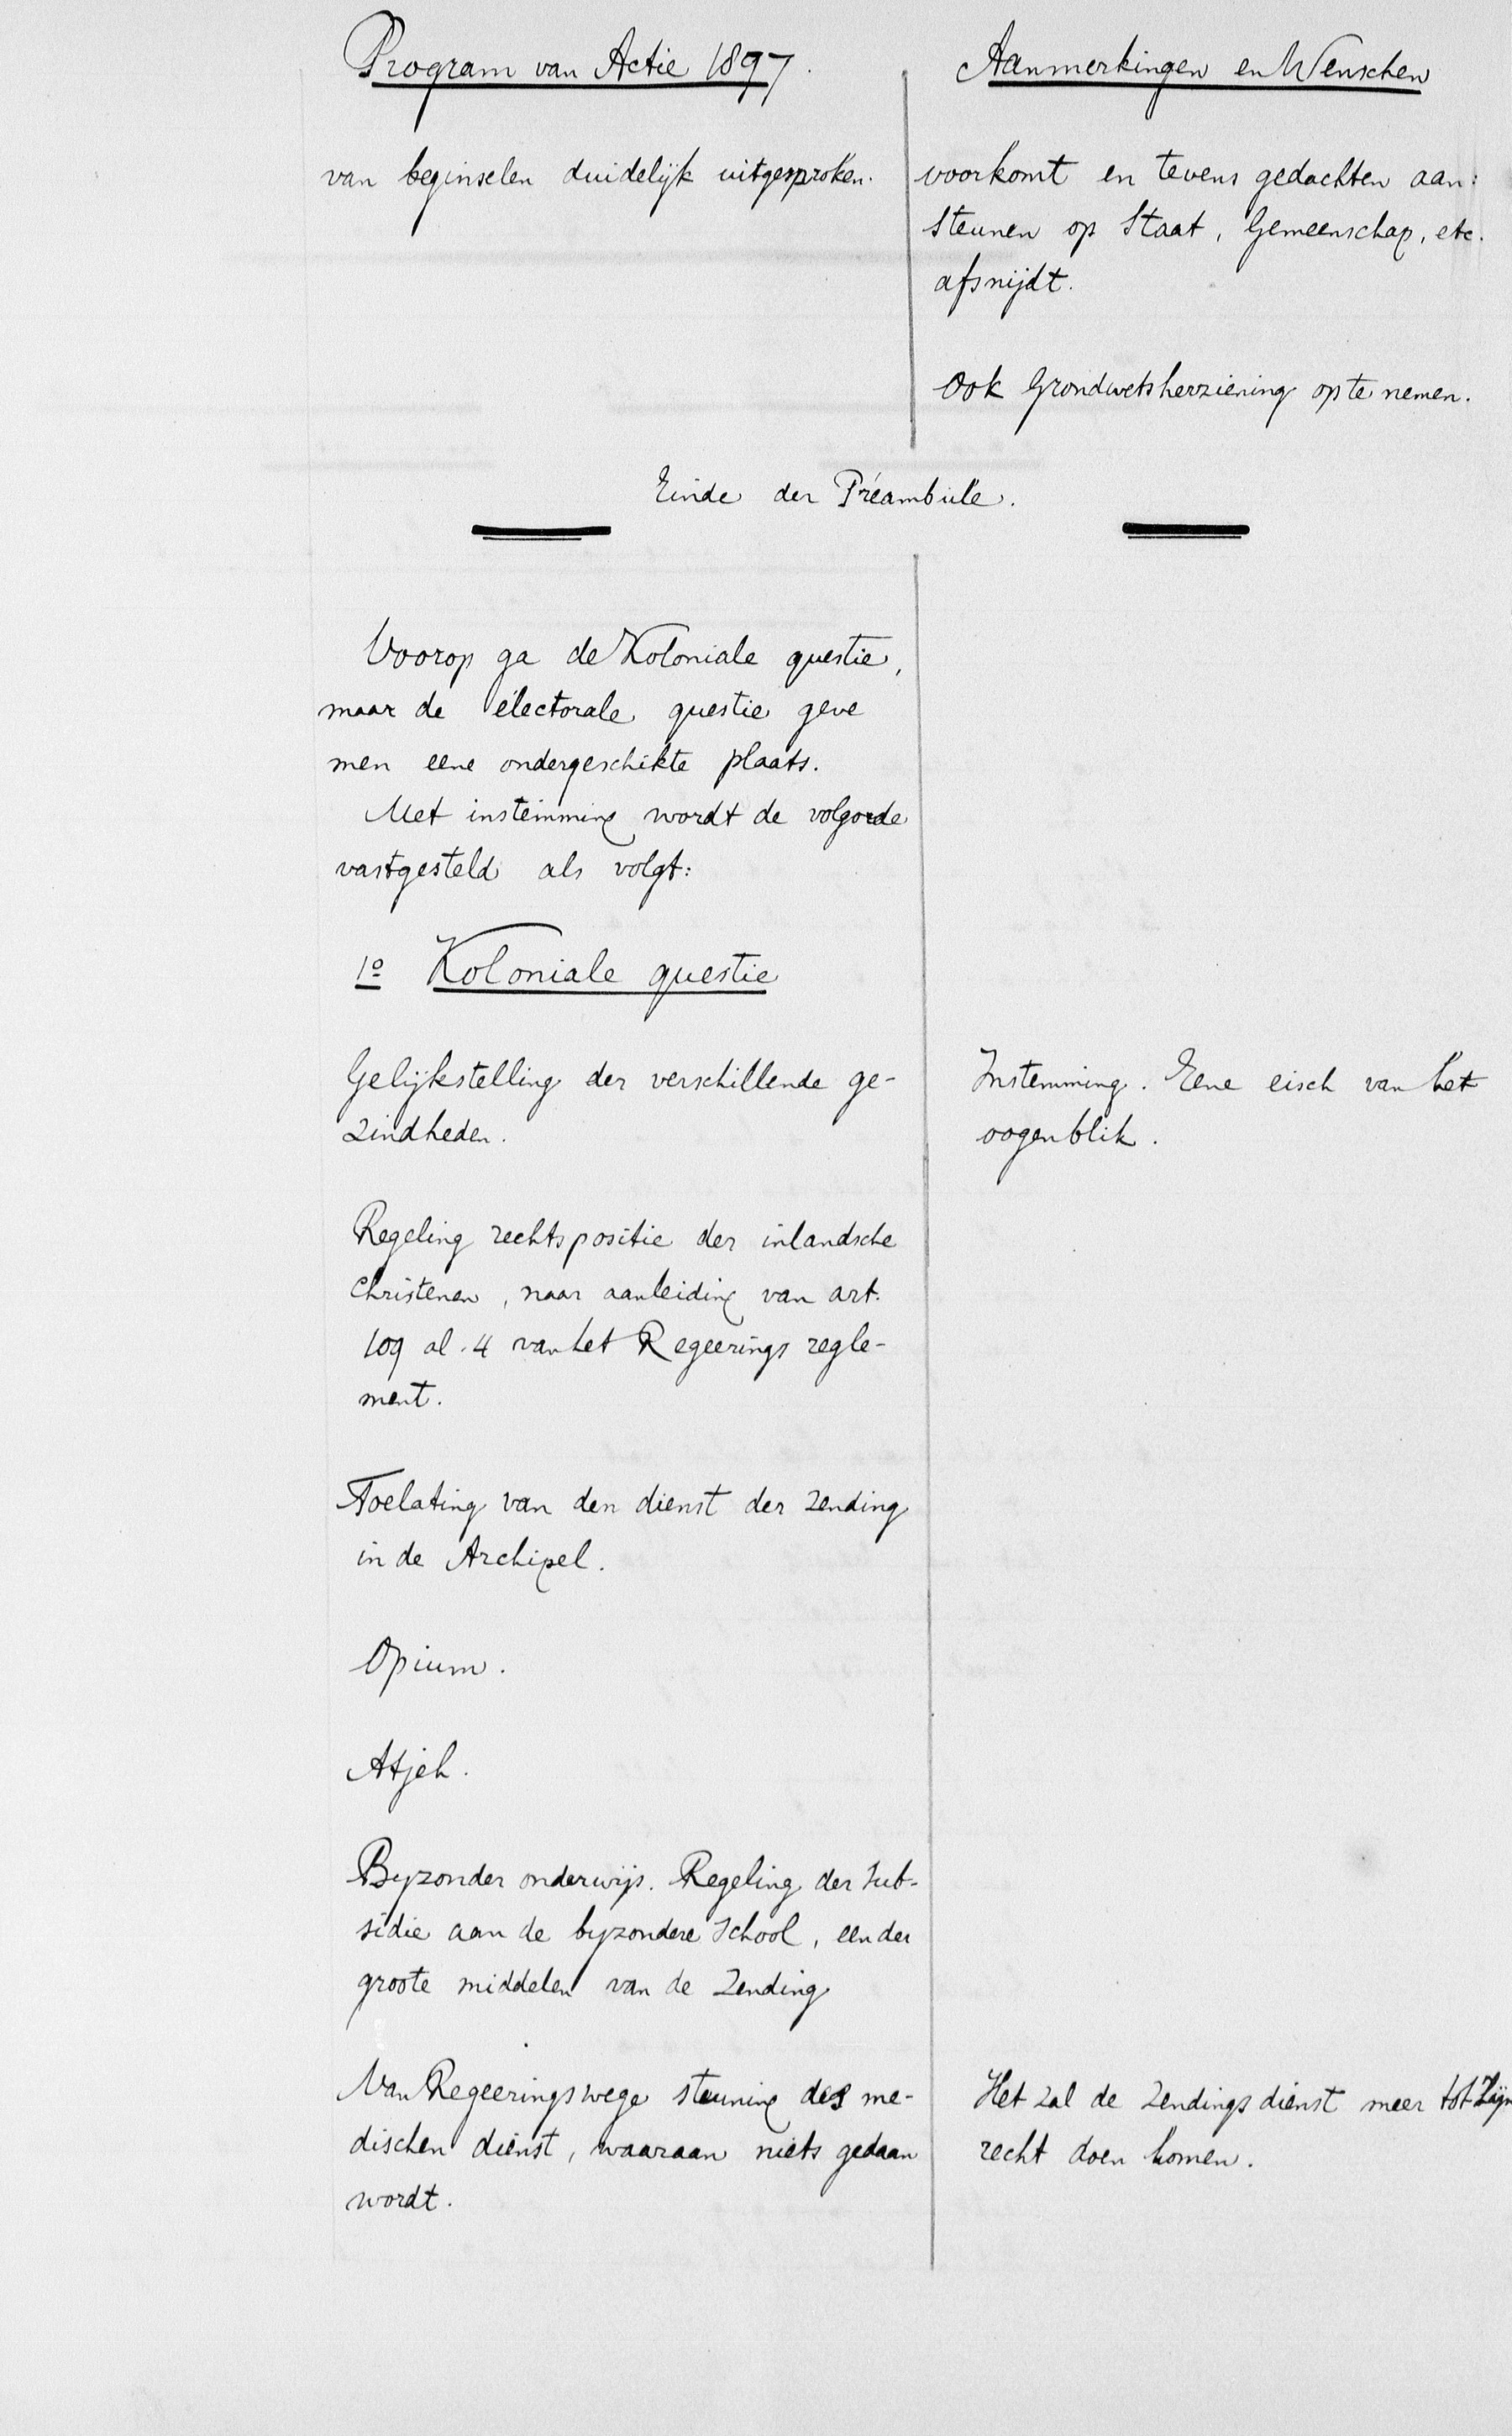 Program van Actie 1897.
van beginselen duidelijk uitgesproken.
Aanmerkingen en Wenschen
voorkomt en tevens gedachten aan:
steunen op Staat, Gemeenschap, etc.
afsnijdt.
Ook Grondwetsherziening op te nemen.
Einde der Préambule.
Voorop ga de Koloniale questie,
maar de électorale questie geve
men eene ondergeschikte plaats.
Met instemming wordt de volgorde
vastgesteld als volgt:
1o Koloniale questie
Gelijkstelling der verschillende ge-
zindheden.
Instemming. Eene eisch van het
oogenblik.
Regeling rechtspositie der inlandsche
Christenen, naar aanleiding van art.
109 al. 4 van het Regeerings regle-
ment.
Toelating van den dienst der zending
in de Archipel.
Opium.
Atjeh.
Byzonder onderwijs. Regeling der sub-
sidie aan de byzondere School, een der
groote middelen van de Zending
Van Regeeringswege steuning des me-
dischen dienst, waaraan niets gedaan
wordt.
Het zal de Zendings dienst meer tot zijn
recht doen komen.